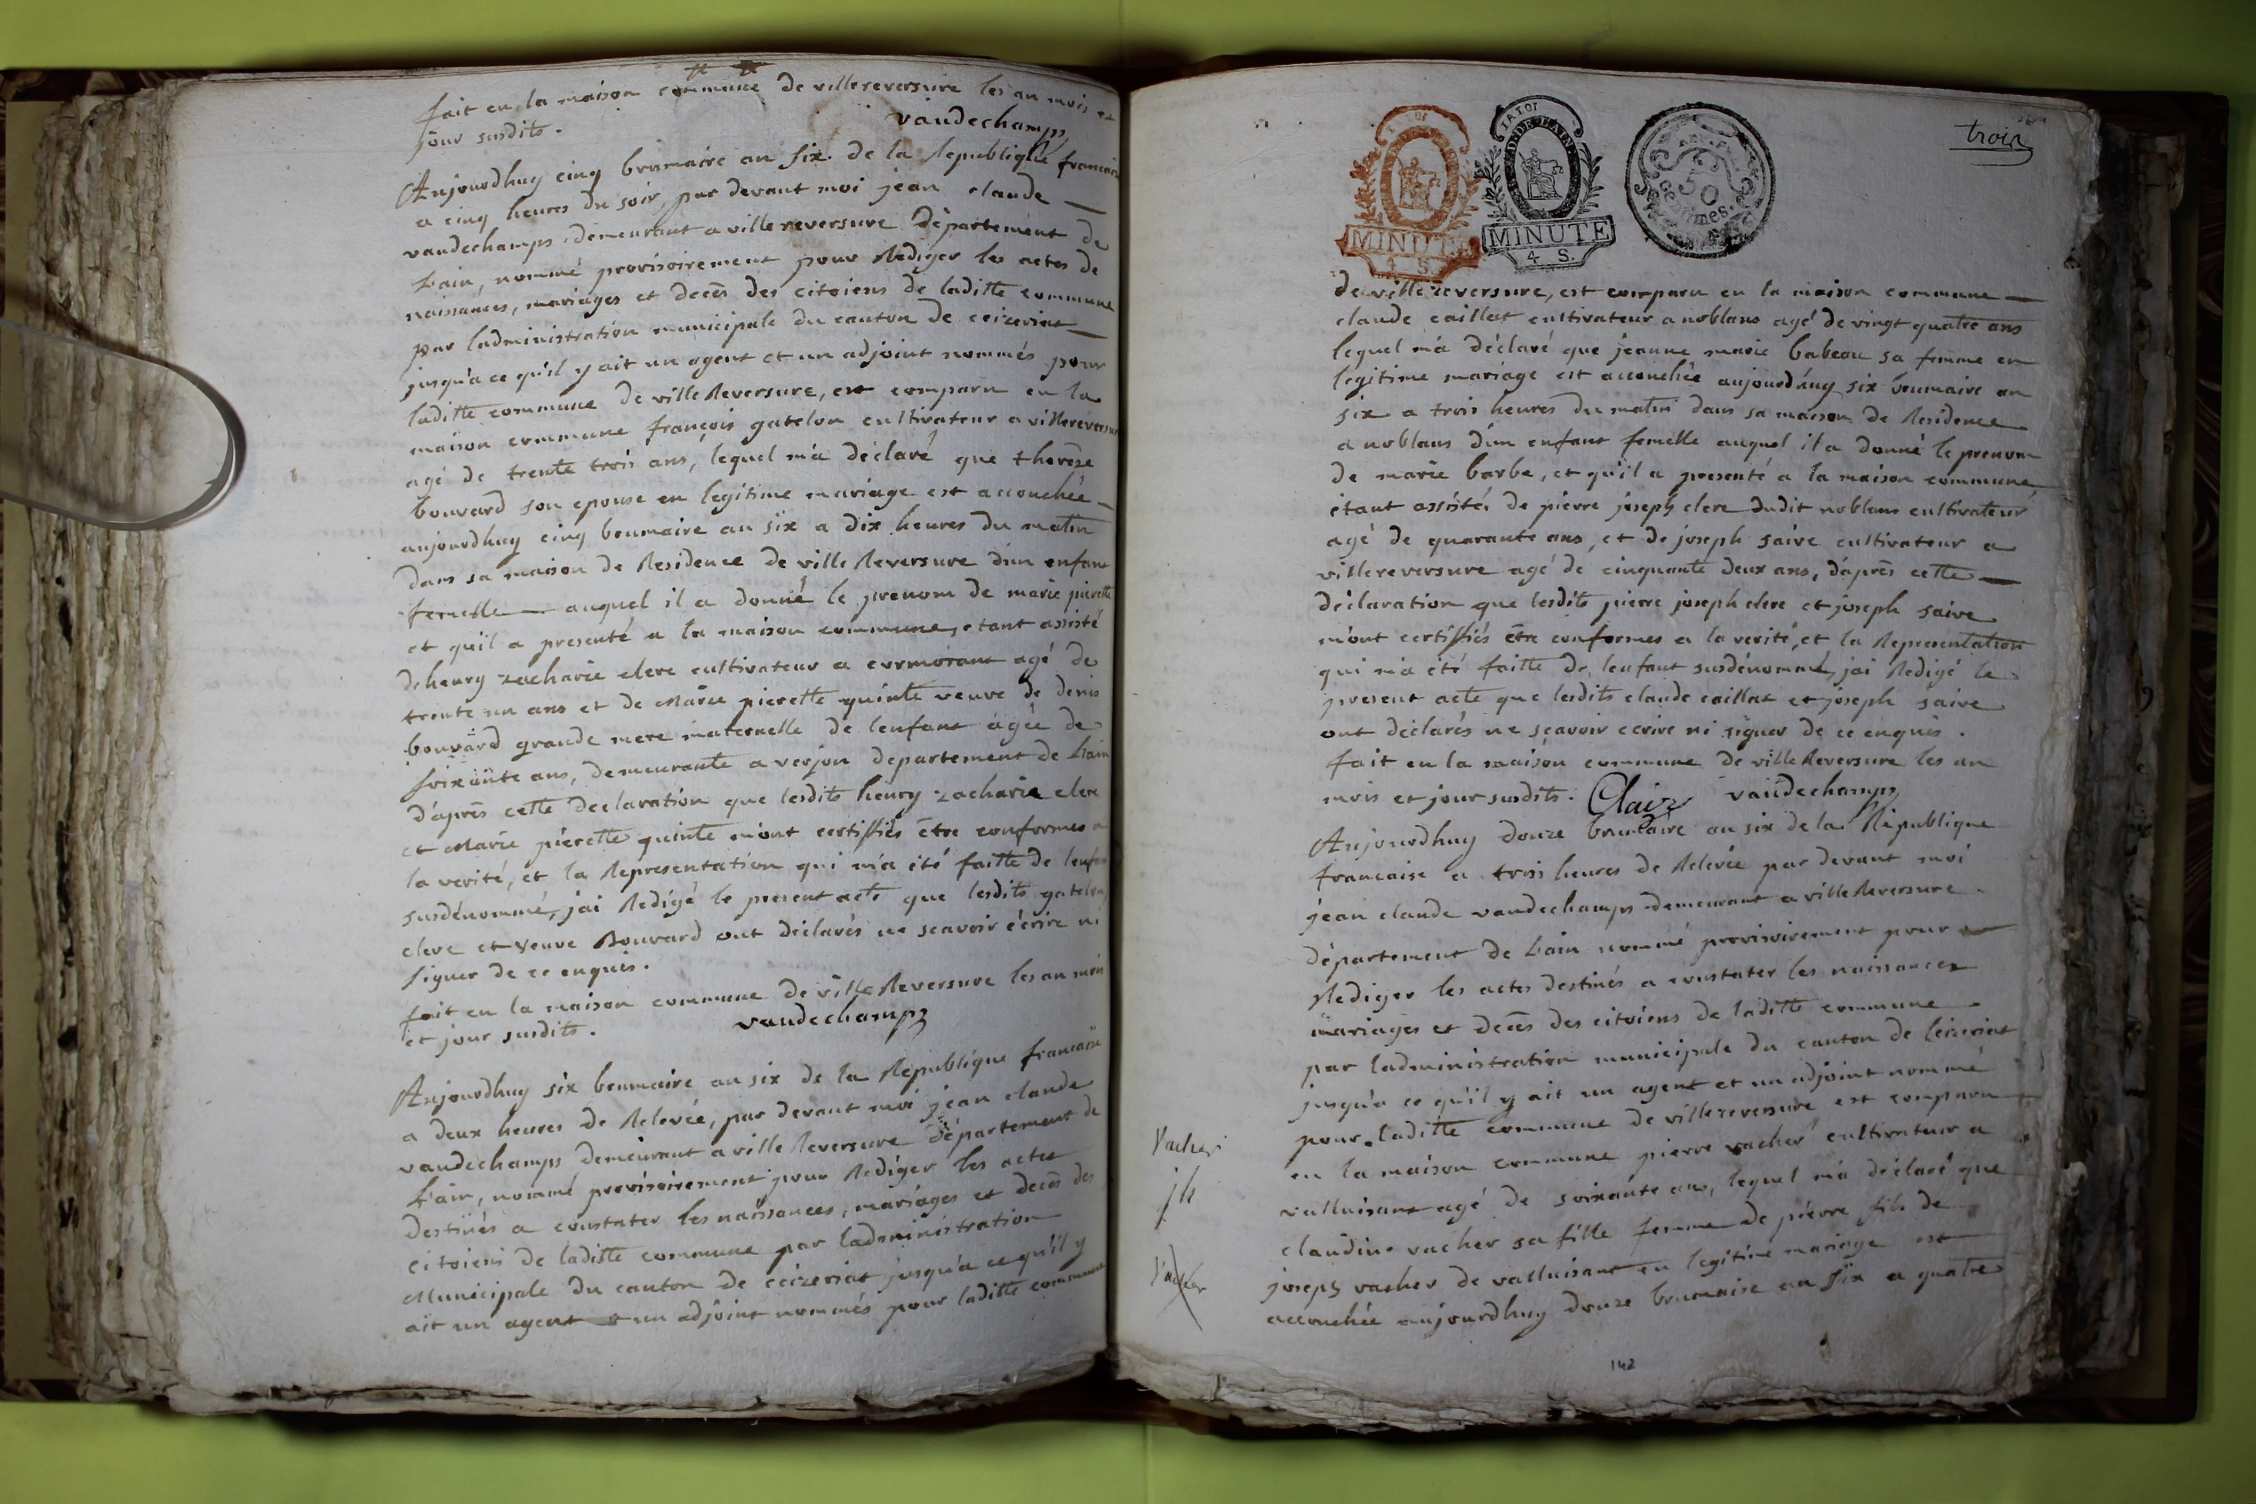 fait en la maison commune de villereversure les an mois et
jour susdits.
vaudechamps
Aujourdhuy cinq brumaire an six de la Republique francaise
a cinq heures du soir, par devant moi jean claude
vaudechamps demeurant a villereversure département de
Lain, nommé provisoirement pour Rediger les actes de
naissances, mariages et decès des citoiens de laditte commune
par ladministration municipale du canton de ceizeriat
jusqua ce qu'il y ait un agent et un adjoint nommés pour
laditte commune de ville Reversure, est comparu en la
maison commune françois gatelon cultivateur a villereversure
agé de trente trois ans, lequel m'a déclaré que therèse
bouvard son epouse en legitime mariage est accouchée
aujourdhuy cinq brumaire an six a dix heures du matin
dans sa maison de Residence de ville Reversure d'un enfant
femelle auquel il a donné le prenom de marie pierette
et qu'il a presenté a la maison commune, etant assisté
de henry zacharie clere cultivateur a cormorant agé de
trente un ans et de Marie pierette quinte veuve de denis
bouvard grande mere maternelle de lenfant agée de
soixante ans, demeurante a verjon departement de Lain
d'après cette declaration que lesdits henry zacharie clere
et Marie pierette quinte m'ont certiffiés être conformes a
la verité, et la Representation qui m'a été faitte de lenfant
susdénommé, jai Redigé le present acte que lesdits gatelon
clere et veuve Bouvard ont déclarés ne scavoir écrire ni
signer de ce enquis.
fait en la maison commune de ville Reversure les an mois
et jour susdits.
vaudechamps
Aujourdhuy six brumaire an six de la Republique francaise
a deux heures de Relevée, par devant moi jean claude
vaudechamps demeurant a ville Reversure département de
Lain, nommé provisoirement pour Rediger les actes
destinés a constater les naissances, mariages et decès des
citoiens de laditte commune par ladministration
Municipale du canton de ceizeriat jusqu'a ce qu'il y
ait un agent et un adjoint nommés pour laditte commune
trois
MINUTE
4 S.
MINUTE
4 S.
50
centimes.
de villereversure, est comparu en la maison commune
claude caillat cultivateur a noblans agé de vingt quatre ans
lequel m'a déclaré que jeanne marie babeau sa femme en
legitime mariage est accouchée aujourdhuy six brumaire an
six a trois heures du matin dans sa maison de Residence
a noblans d'un enfant femelle auquel il a donné le prenom
de marie barbe, et qu'il a presenté a la maison commune
étant assisté de pierre joseph clere dudit noblans cultivateur
agé de quarante ans, et de joseph saive cultivateur a
villereversure agé de cinquante deux ans, d'après cette
déclaration que lesdits pierre joseph clere et joseph saive
m'ont certiffiés être conformes a la verité, et la Representation
qui m'a été faitte de lenfant susdénommé, jai Redigé le
present acte que lesdits claude caillat et joseph saive
ont déclarés ne sçavoir écrire ni signer de ce enquis.
fait en la maison commune de ville Reversure les an
mois et jour susdits. Clair vaudechamps
Aujourdhuy douze brumaire an six de la Republique
francaise a trois heures de Relevée par devant moi
jean claude vaudechamps demeurant a ville Reversure
département de Lain nommé provisoirement pour
Rediger les actes destinés a constater les naissances
mariages et decès des citoiens de laditte commune
par ladministration municipale du canton de Ceizeriat
jusqu'a ce qu'il y ait un agent et un adjoint nommé
pour laditte commune de villereversure est comparu
en la maison commune pierre vacher cultivateur a
valluisant agé de soixante ans, lequel m'a déclaré que
claudine vacher sa fille femme de pierre fils de
joseph vacher de valluisant en legitime mariage est
accouchée aujourdhuy douze brumaire an six a quatre
Vacher
jh
Vacher
142